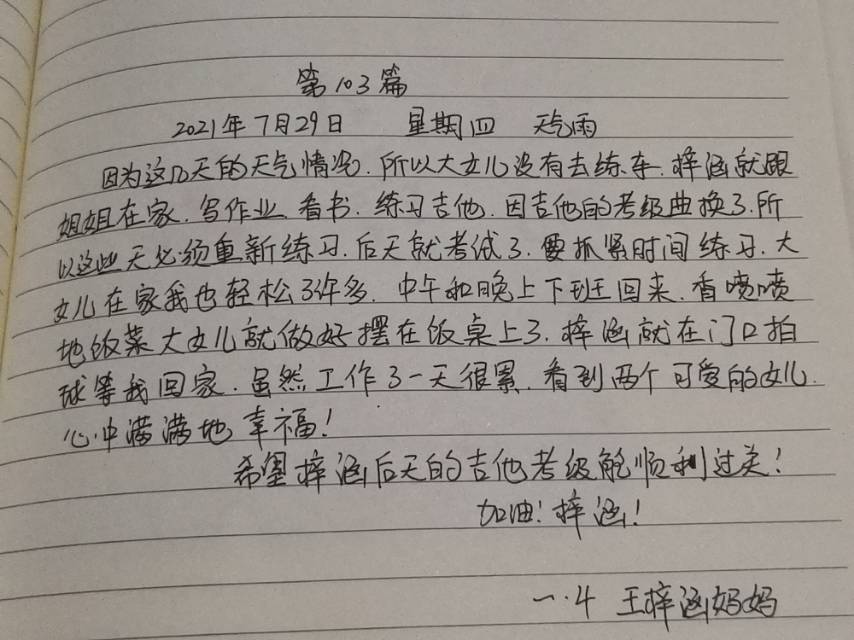 第103篇
2021年7月29日 星期四 天气雨
因为这几天的天气情况.所以大女儿没有去练车.梓涵就跟
姐姐在家.写作业.看书.练习吉他.因吉他的考级曲换了.所
以这些天必须重新练习.后天就考试了.要抓紧时间练习.大
女儿在家我也轻松了许多.中午和晚上下班回来.香喷喷
地饭菜大女儿就做好摆在饭桌上了.梓涵就在门口拍
球等我回家.虽然工作了一天很累.看到两个可爱的女儿.
心中满满地幸福!
希望梓涵后天的吉他考级能顺利过关!
加油!梓涵!
一.4 王梓涵妈妈